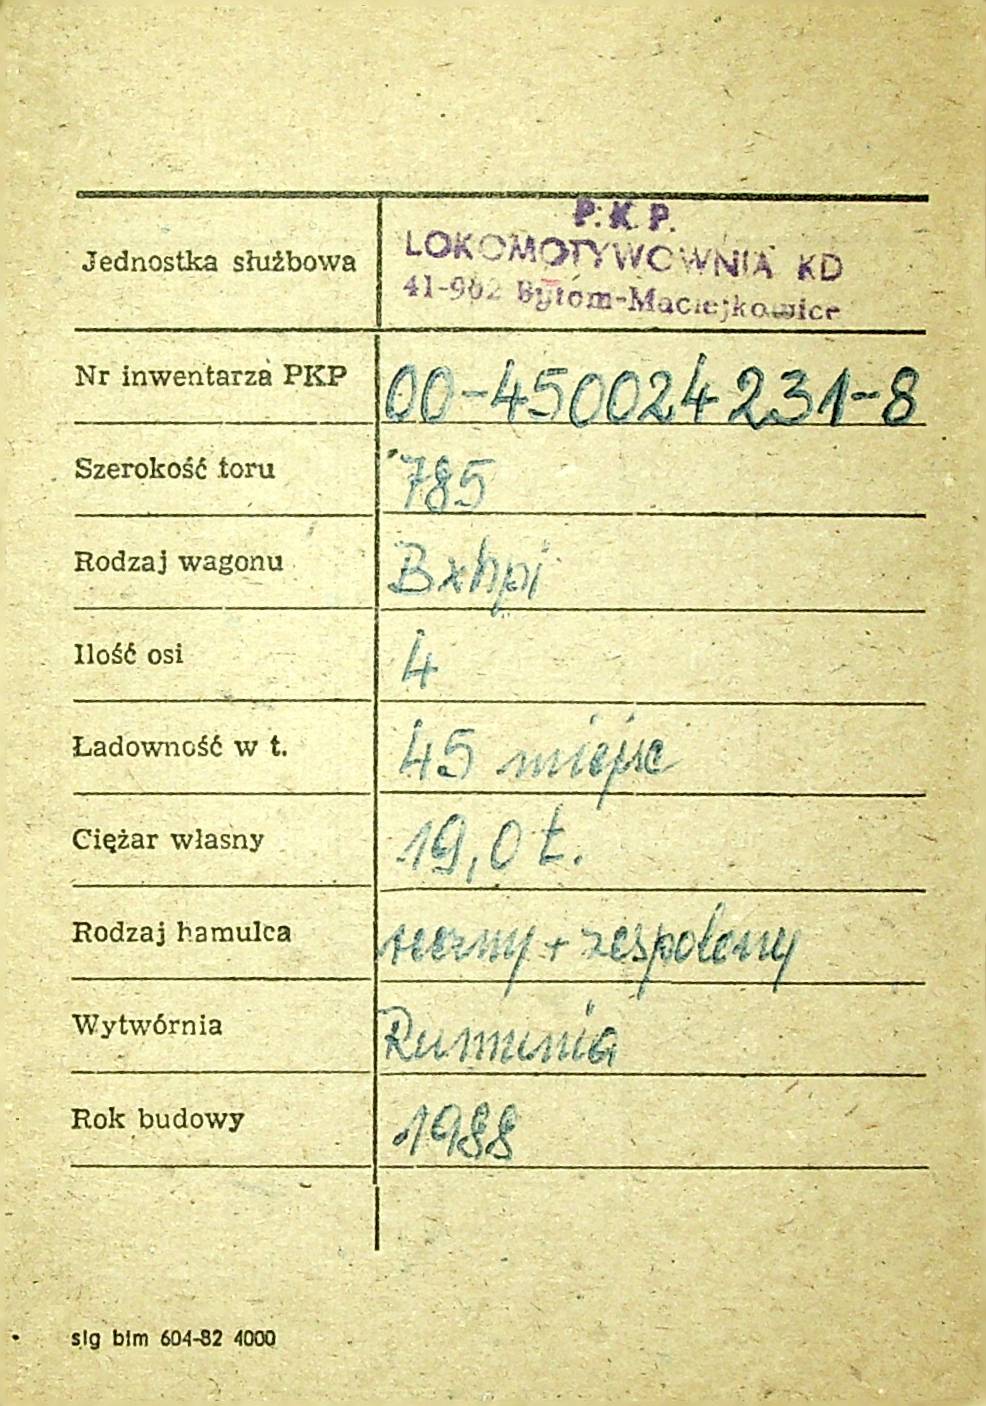 P. K. P.
Jednostka służbowa LOKOMOTYWOWNIA KD
41-902 Bytom-Maciejkowice
Nr inwentarza PKP 00-450024231-8
Szerokość toru 785
Rodzaj wagonu Bxhpi
Ilość osi 4
Ładowność w t. 45 miejsc
Ciężar własny 19,0 t.
Rodzaj hamulca ręczny + zespolony
Wytwórnia Rumunia
Rok budowy 1988
slg blm 604-82 4000